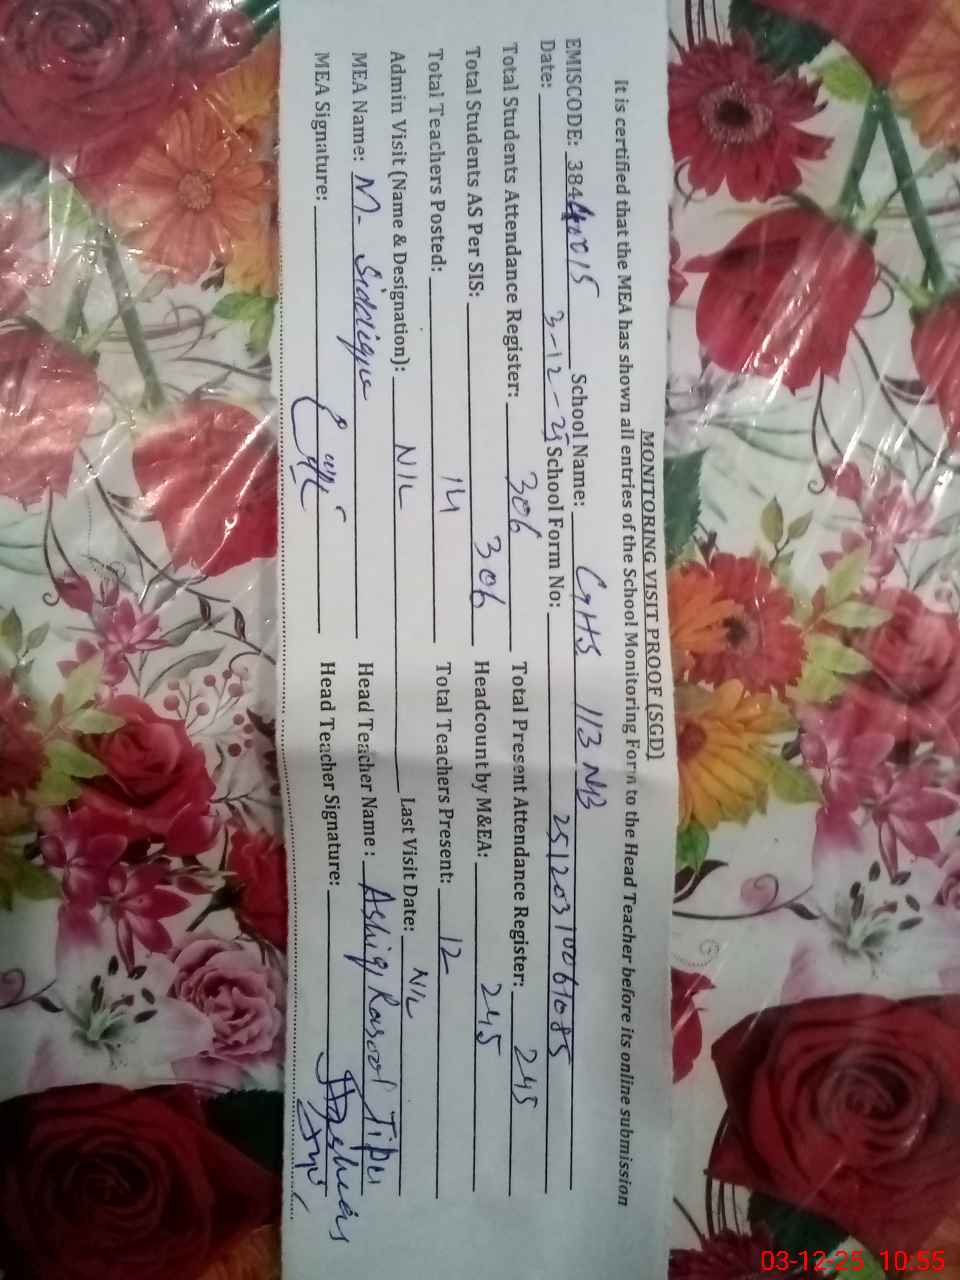 MONITORING VISIT PROOF (SGD)
It is certified that the MEA has shown all entries of the School Monitoring Form to the Head Teacher before its online submission
EMISCODE: 384 School Name: GHS 113 NB
Date: 3-12-25 School Form No: 25120310061085
Total Students Attendance Register: 306 Total Present Attendance Register: 245
Total Students AS Per SIS: 306 Headcount by M&EA: 245
Total Teachers Posted: 14 Total Teachers Present: 12
Admin Visit (Name & Designation): NIL Last Visit Date: NIL
MEA Name: M- Siddique Head Teacher Name : Ashiq Rasool Tipu
MEA Signature: Head Teacher Signature:
03-12-25 10:55